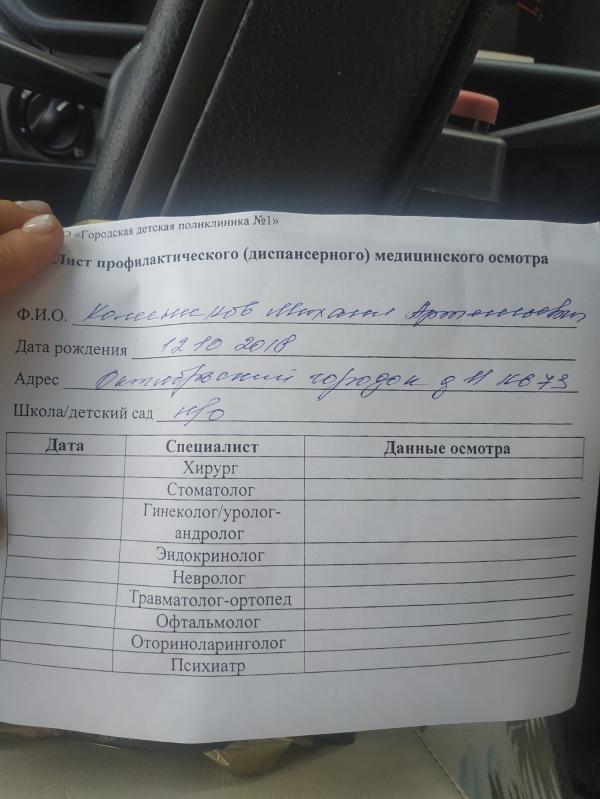 «Городская детская поликлиника №1»
Лист профилактического (диспансерного) медицинского осмотра
Ф.И.О. Колесников Михаил Артемьевич
Дата рождения 12 10 2018
Адрес Октябрьский городок д 11 кв 73
Школа/детский сад н/о
Дата Специалист Данные осмотра
Хирург
Стоматолог
Гинеколог/уролог-
андролог
Эндокринолог
Невролог
Травматолог-ортопед
Офтальмолог
Оториноларинголог
Психиатр